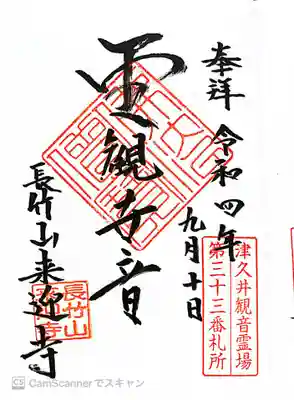 奉拝
令和四年
九月十日
津久井観音霊場
第三十三番札所
聖観世音
長竹山来迎寺
長竹山
CS CamScannerでスキャン